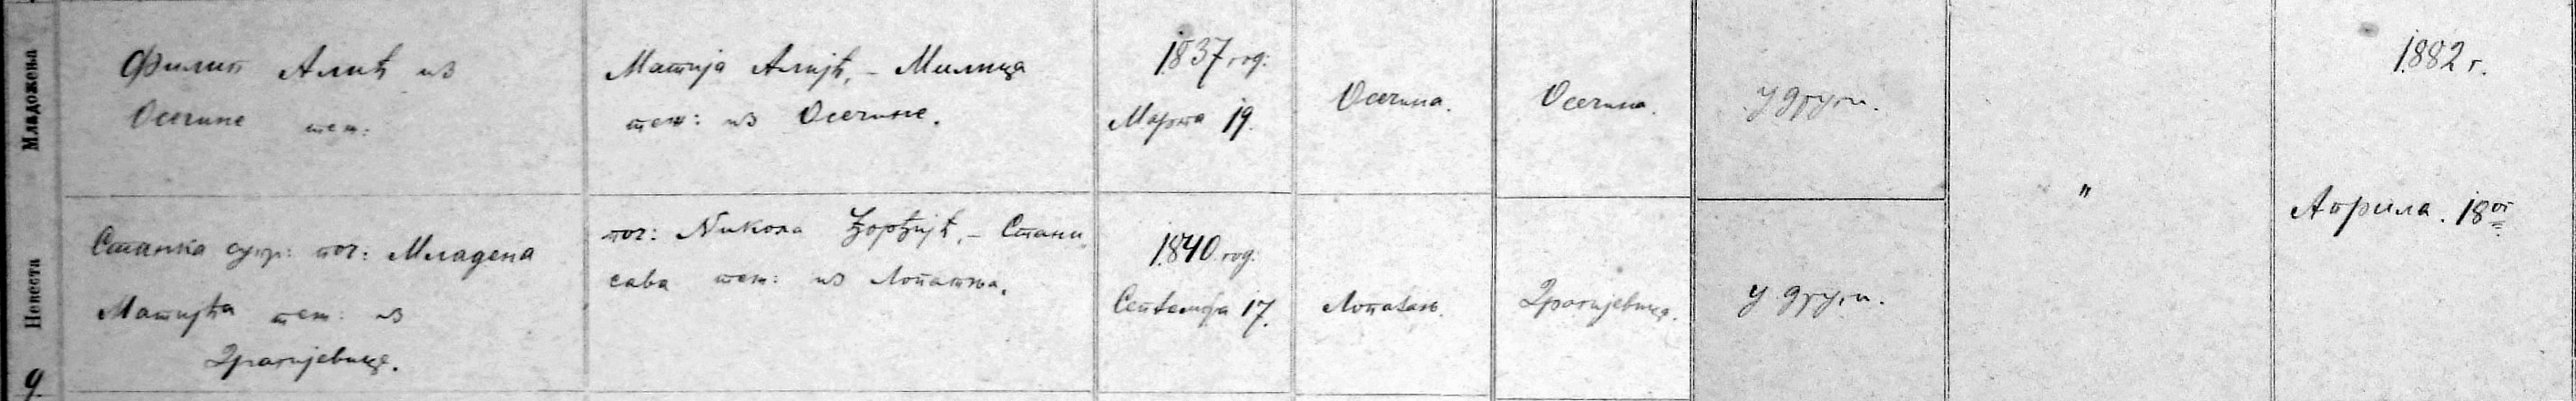 Младожења
Филип Алић из
Осечине теж:
Матија Алијћ, – Милица
теж: из Осечине.
1837 год:
Марта 19.
Осечина.
Осечина.
у други.
"
1882 г.
Априла. 18ог
Невеста
9
Станка супр: поч: Младена
Матијћа теж: из
Драгијевице.
поч: Никола Ђорђијћ, – Стани
сава теж: из Лопатња.
1840 год:
Септембра 17.
Лопатањ.
Драгијевица.
у други.